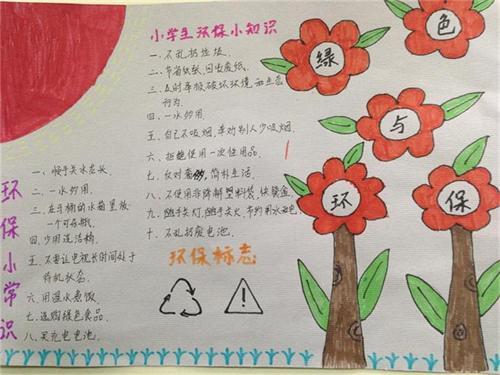 小学生环保小知识
一、不乱扔垃圾.
二、节省纸张,回收废纸.
三、及时举报破坏环境和生态
行为.
四、一水多用.
五、自己不吸烟,奉劝别人少吸烟.
六、拒绝使用一次性用品.
七、反对奢侈,简朴生活.
八、不使用非降解塑料袋、快餐盒.
九、随手关灯,随手关火,节约用水用电.
十、不乱扔废电池.
环保标志
环保小常识
一、随手关水龙头.
二、一水多用.
三、在马桶的水箱里放
一个可乐瓶.
四、少用洗洁精.
五、不要让电视长时间处于
待机状态.
六、用温水煮饭.
七、选购绿色食品.
八、买充电电池.
绿
色
与
环
保